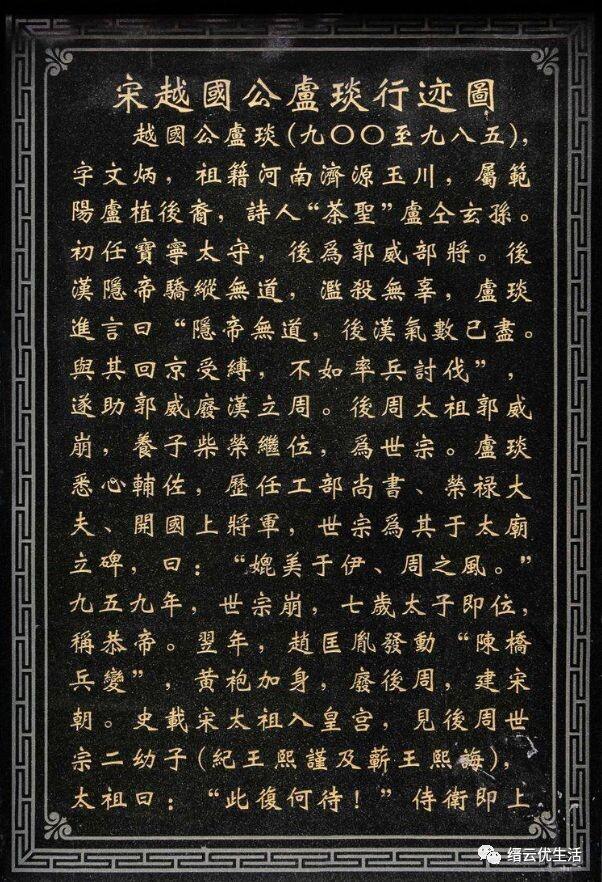 宋越國公盧琰行迹圖
越國公盧琰(九〇〇至九八五),
字文炳,祖籍河南濟源玉川,屬範
陽盧植後裔,詩人“茶聖”盧仝玄孫。
初任寶寧太守,後爲郭威部將。後
漢隱帝驕縱無道,濫殺無辜,盧琰
進言曰“隱帝無道,後漢氣數已盡。
與其回京受縛,不如率兵討伐”,
遂助郭威廢漢立周。後周太祖郭威
崩,養子柴榮繼位,爲世宗。盧琰
悉心輔佐,歷任工部尚書、榮禄大
夫、開國上將軍,世宗爲其于太廟
立碑,曰:“媲美于伊、周之風。”
九五九年,世宗崩,七歲太子即位,
稱恭帝。翌年,趙匡胤發動“陳橋
兵變”,黄袍加身,廢後周,建宋
朝。史載宋太祖入皇宫,見後周世
宗二幼子(紀王熙謹及蘄王熙誨),
太祖曰:“此復何待!”侍衛即上
缙云优生活